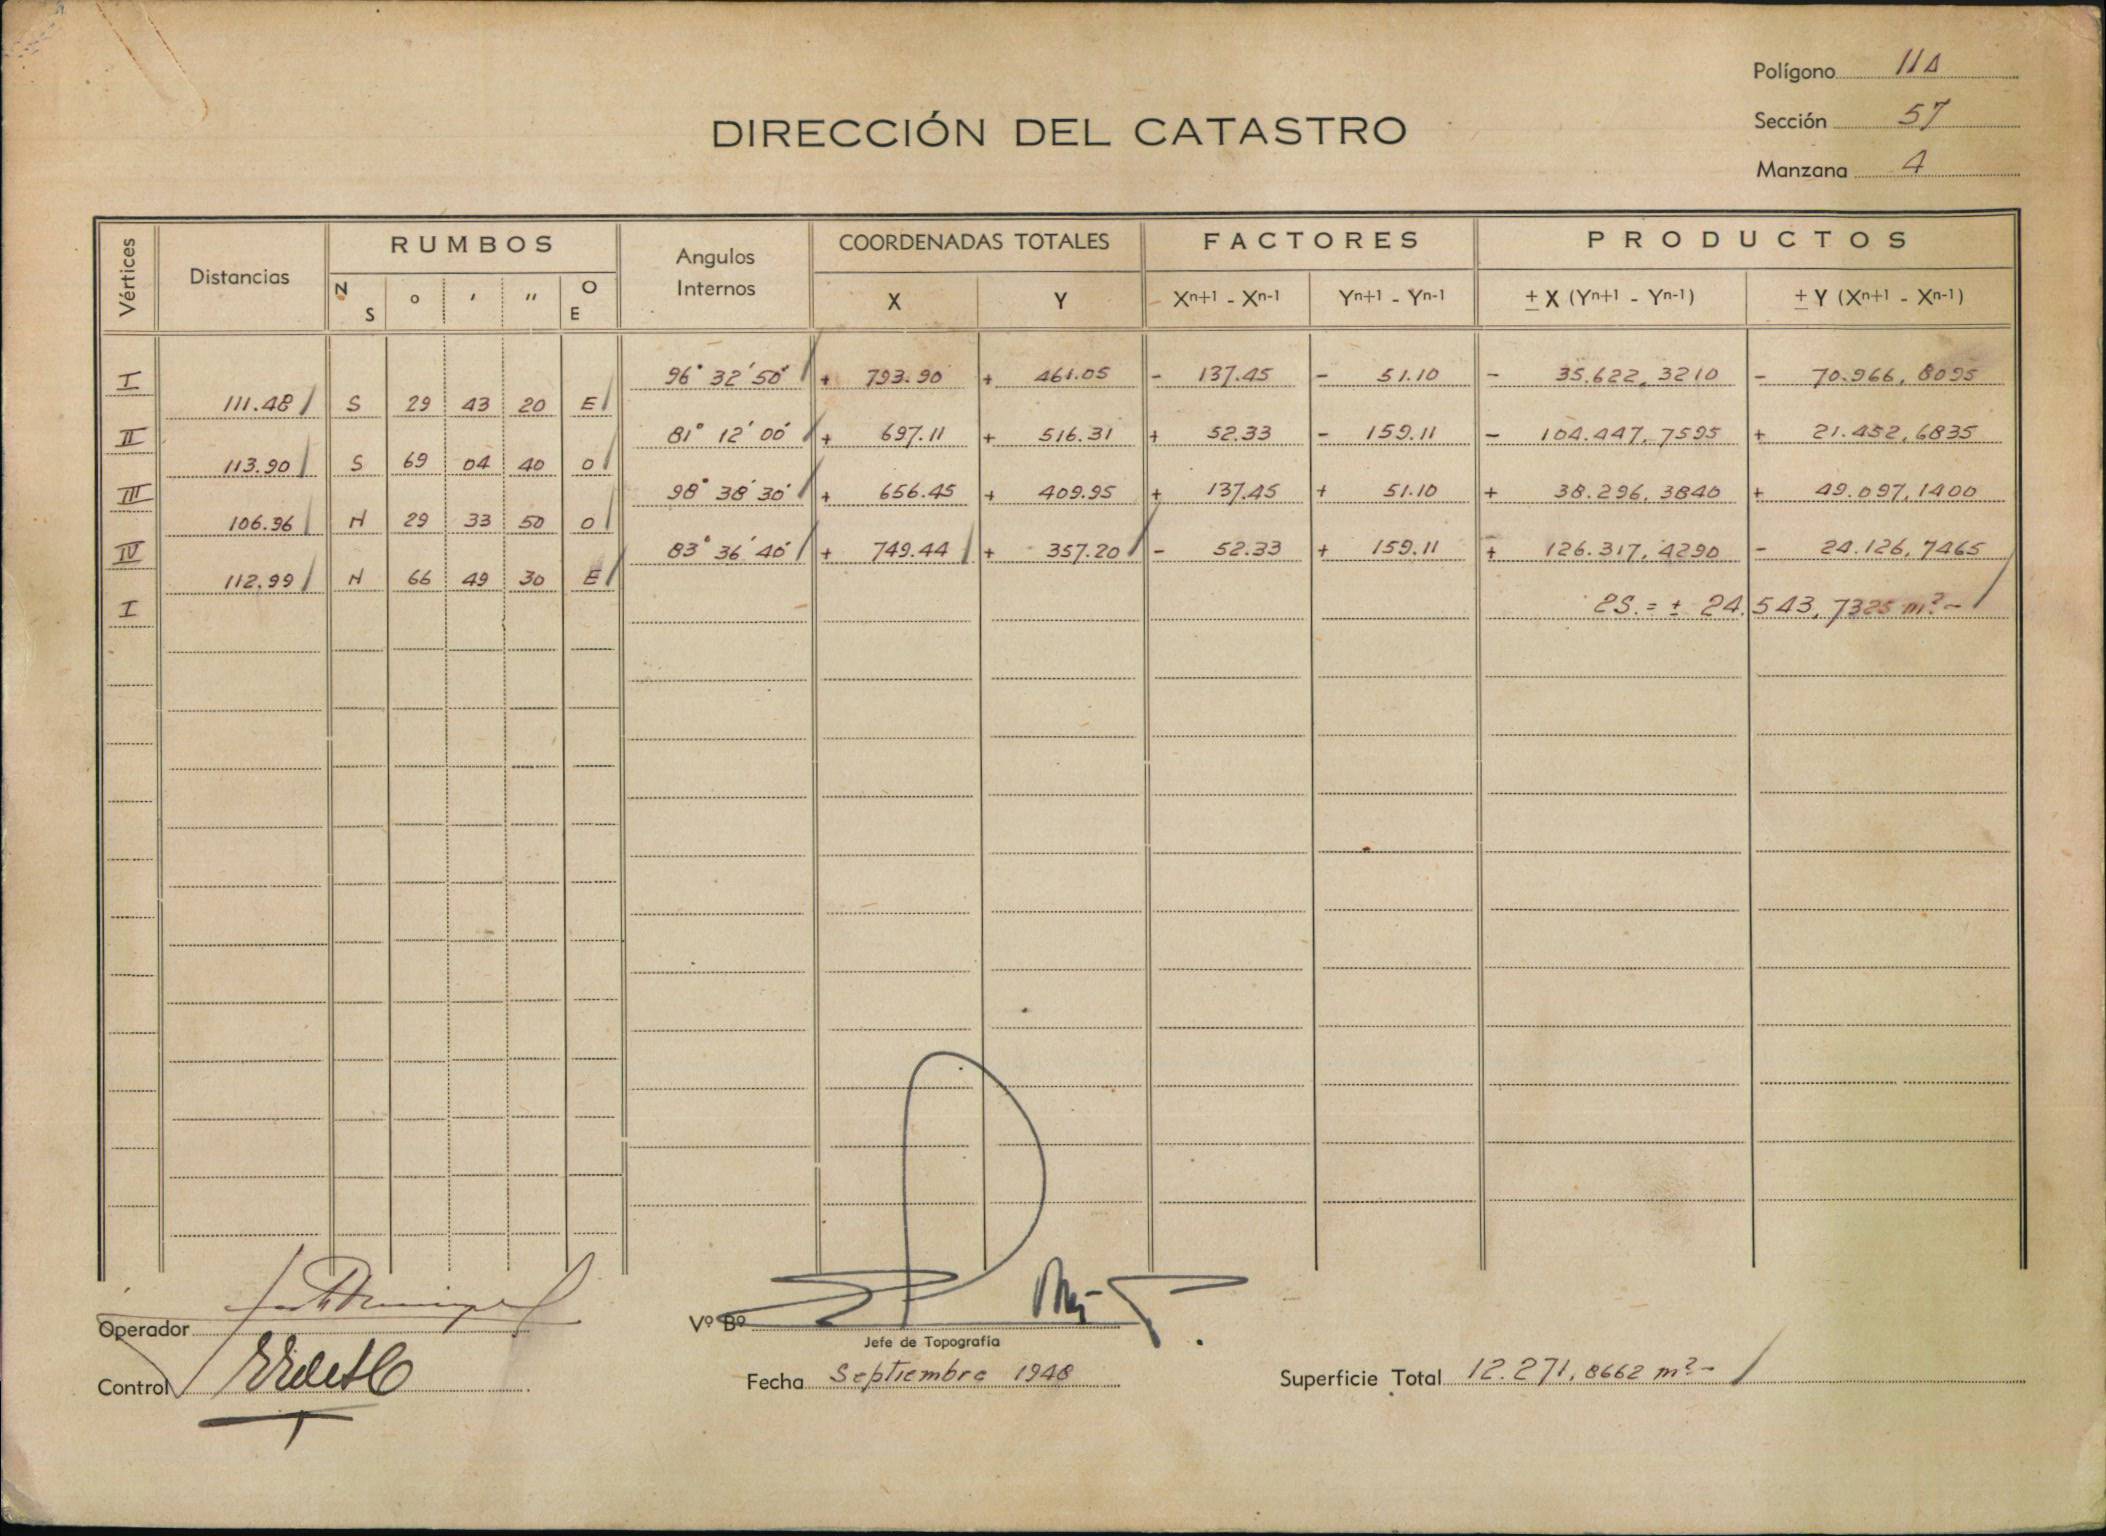 Polígono 11A
Sección 57
Manzana 4
DIRECCIÓN DEL CATASTRO
Vértices Distancias RUMBOS Angulos Internos COORDENADAS TOTALES FACTORES PRODUCTOS
N S o ' " O E X Y Xn+1 - Xn-1 Yn+1 - Yn-1 ± X (Yn+1 - Yn-1) ± Y (Xn+1 - Xn-1)
I 96° 32' 50" + 793.90 + 461.05 - 137.45 - 51.10 - 35.622,3210 - 70.966,8095
111.48 S 29 43 20 E
II 81° 12' 00" + 697.11 + 516.31 + 52.33 - 159.11 - 104.447,7595 + 21.452,6835
113.90 S 69 04 40 O
III 98° 38' 30" + 656.45 + 409.95 + 137.45 + 51.10 + 38.296,3840 + 49.097,1400
106.96 N 29 33 50 O
IV 83° 36' 40" + 749.44 + 357.20 - 52.33 + 159.11 + 126.317,4290 - 24.126,7465
112.99 N 66 49 30 E
I 2S. = ± 24.543,7325 m² -
Operador
Control
Vº Bº
Jefe de Topografía
Fecha Septiembre 1948
Superficie Total 12.271,8662 m² -